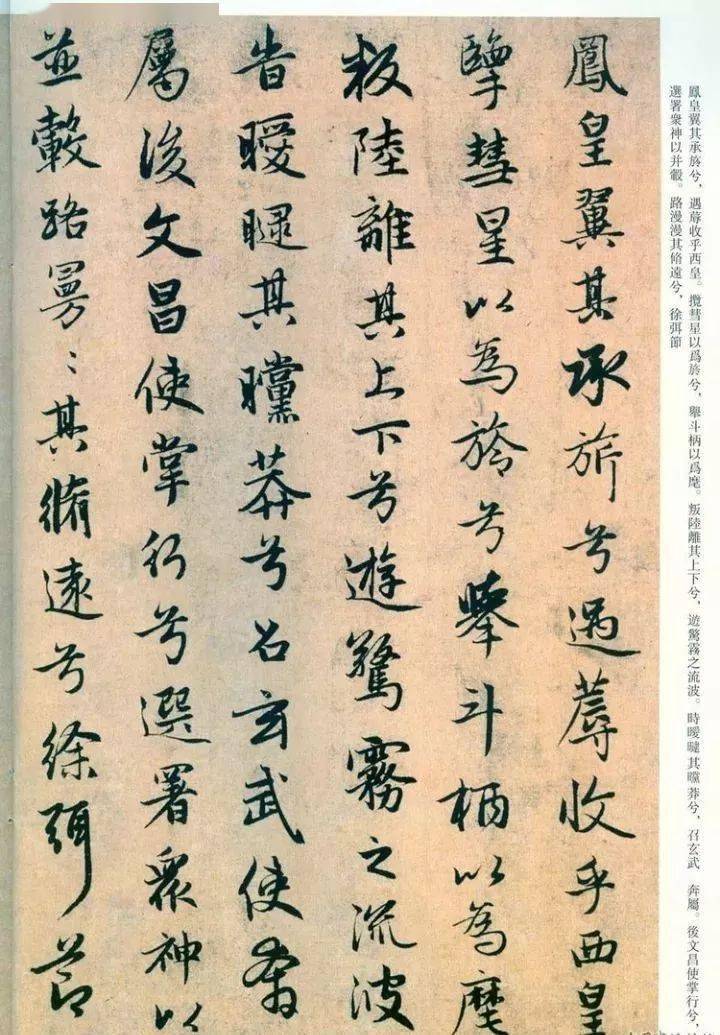 鳳皇翼其承旂兮，遇蓐收乎西皇。攬彗星以爲旍兮，舉斗柄以爲麾。叛陸離其上下兮，遊驚霧之流波。時曖曃其曭莽兮，召玄武　奔屬。後文昌使掌行兮，
選署衆神以并轂。路漫漫其脩遠兮，徐弭節
鳳皇翼其承旂兮遇蓐收乎西皇
擥彗星以為旍兮舉斗柄以為麾
叛陸離其上下兮遊驚霧之流波
旹曖曃其曭莽兮召玄武使奔
屬後文昌使掌行兮選署衆神以
並轂路曼〻其脩遠兮徐弭節